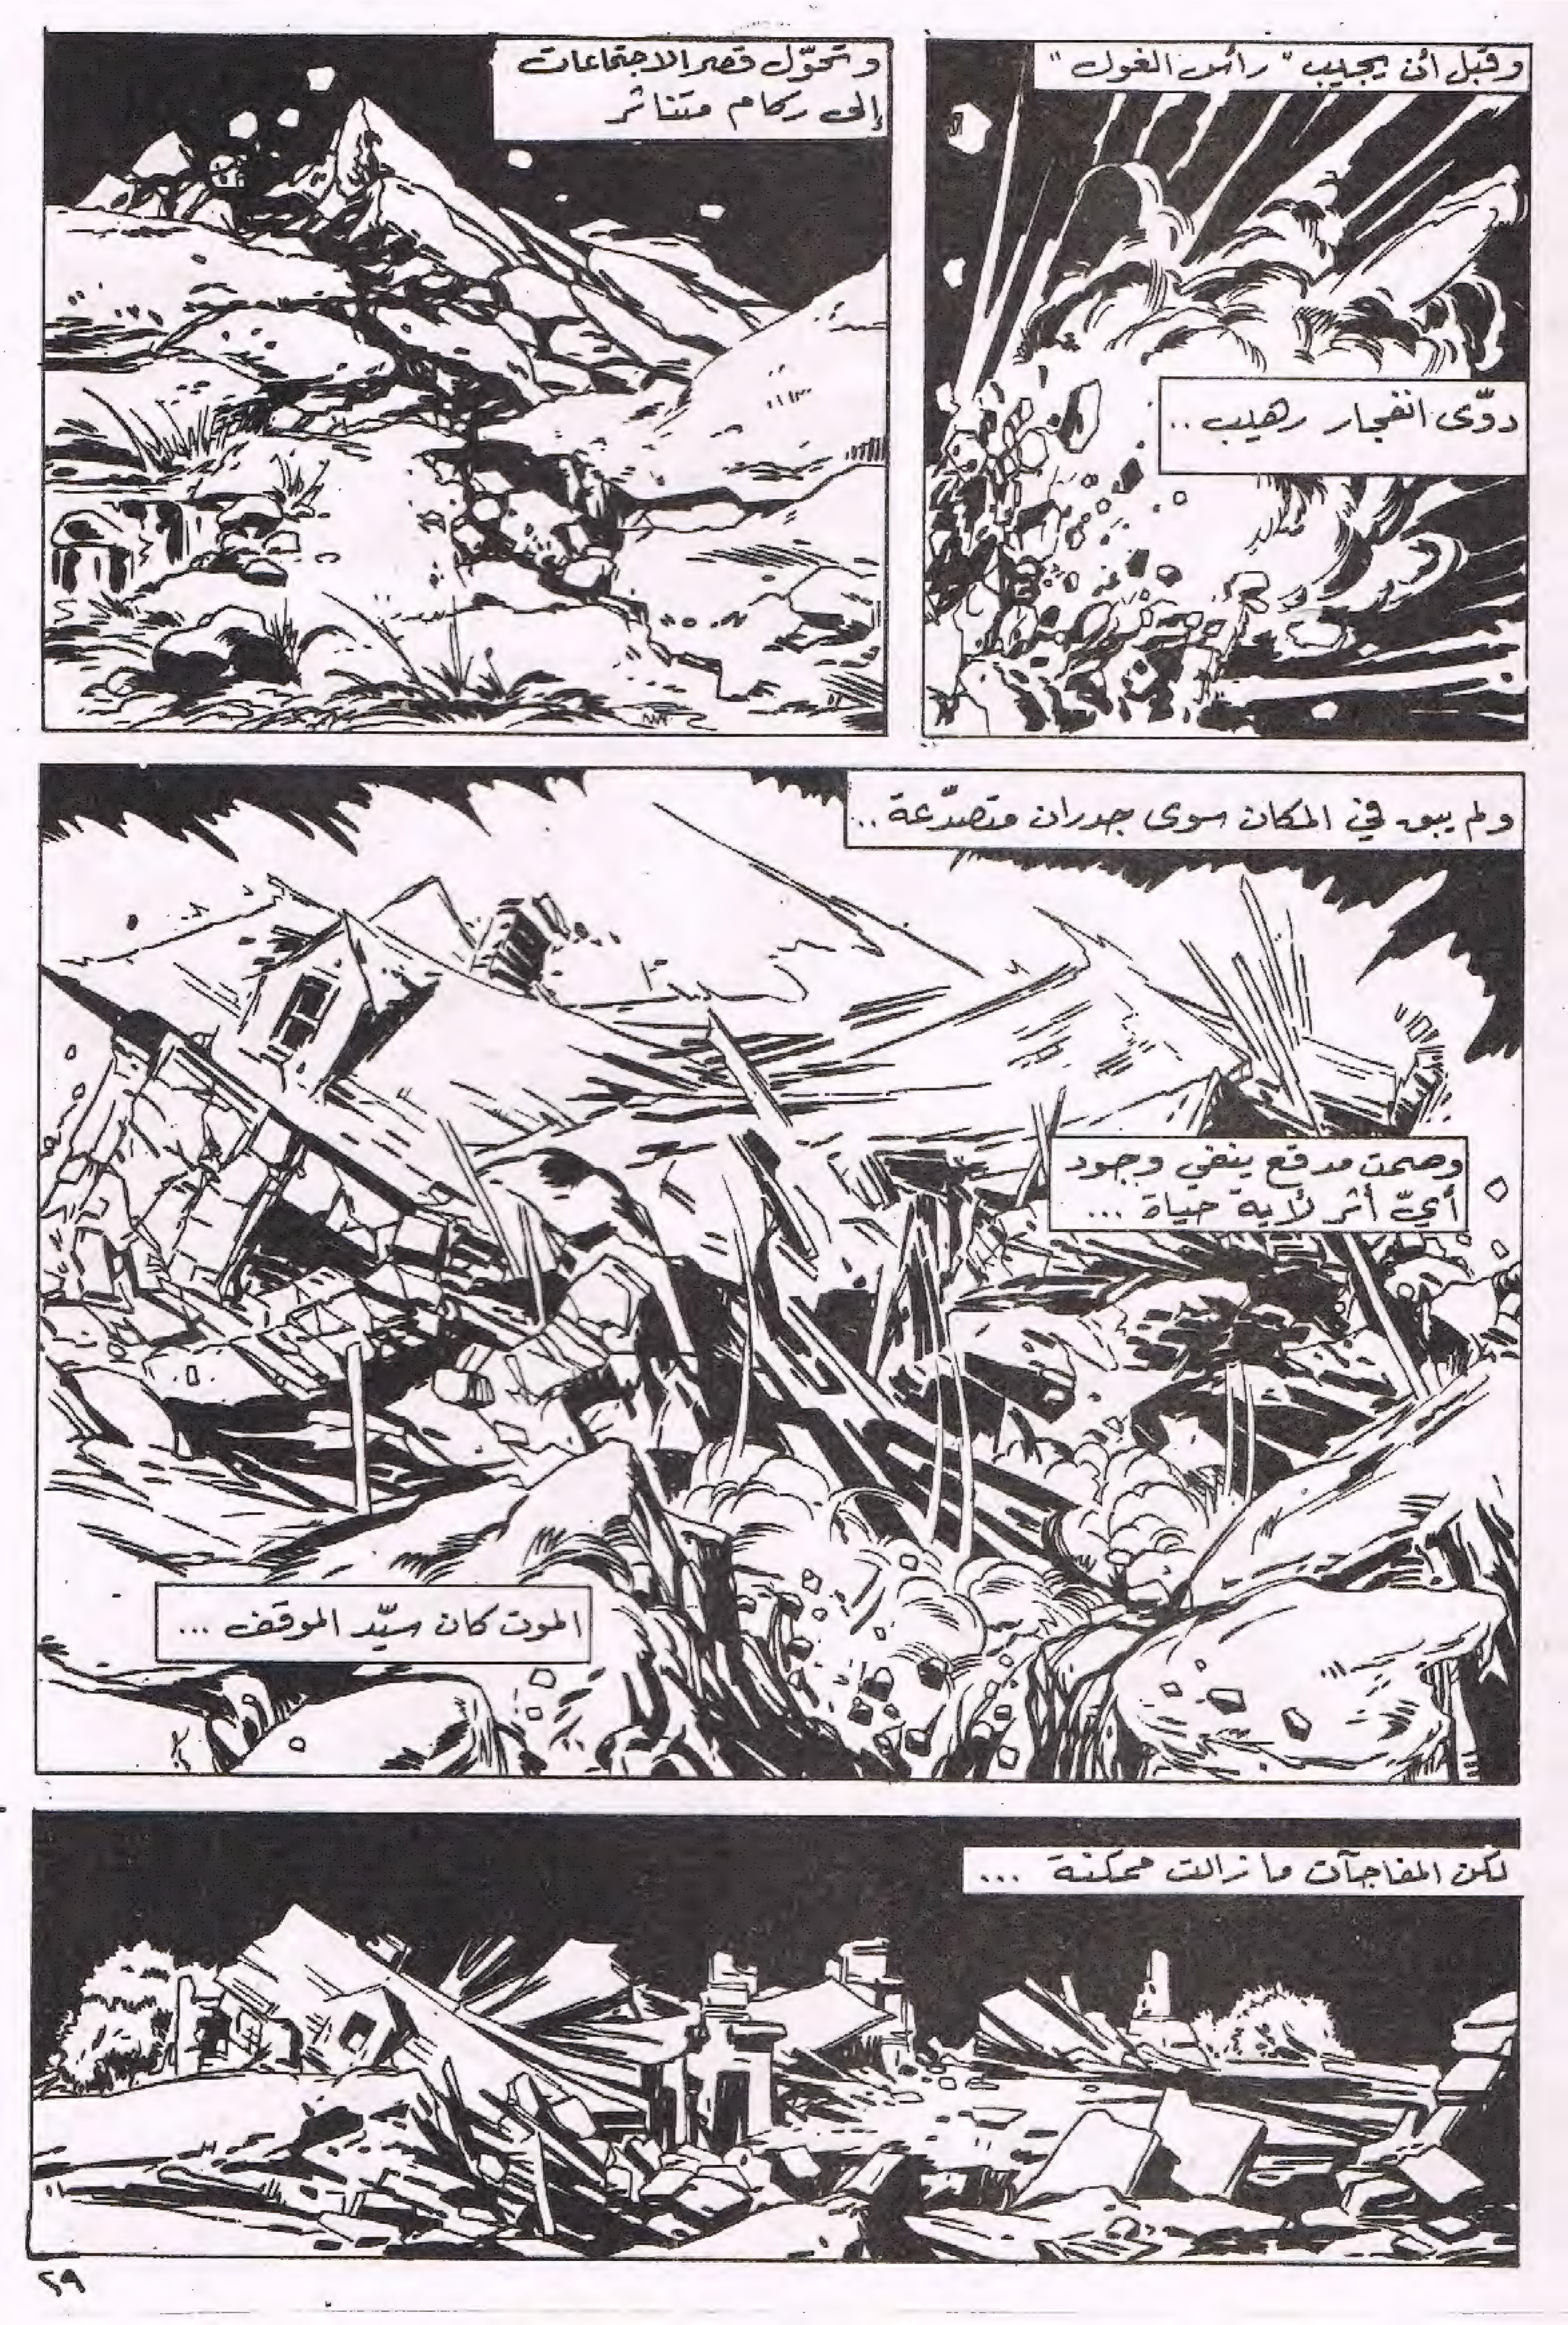 وقبل أن يجيب "رأس الغول"
دوّى انفجار رهيب..
وتحوّل قصر الاجتماعات
إلى ركام متناثر
ولم يبق في المكان سوى جدران متصدّعة..
وصمت مدقع ينفي وجود
أيّ أثر لأية حياة ...
الموت كان سيّد الموقف ...
لكن المفاجآت ما زالت ممكنة ...
٢٩